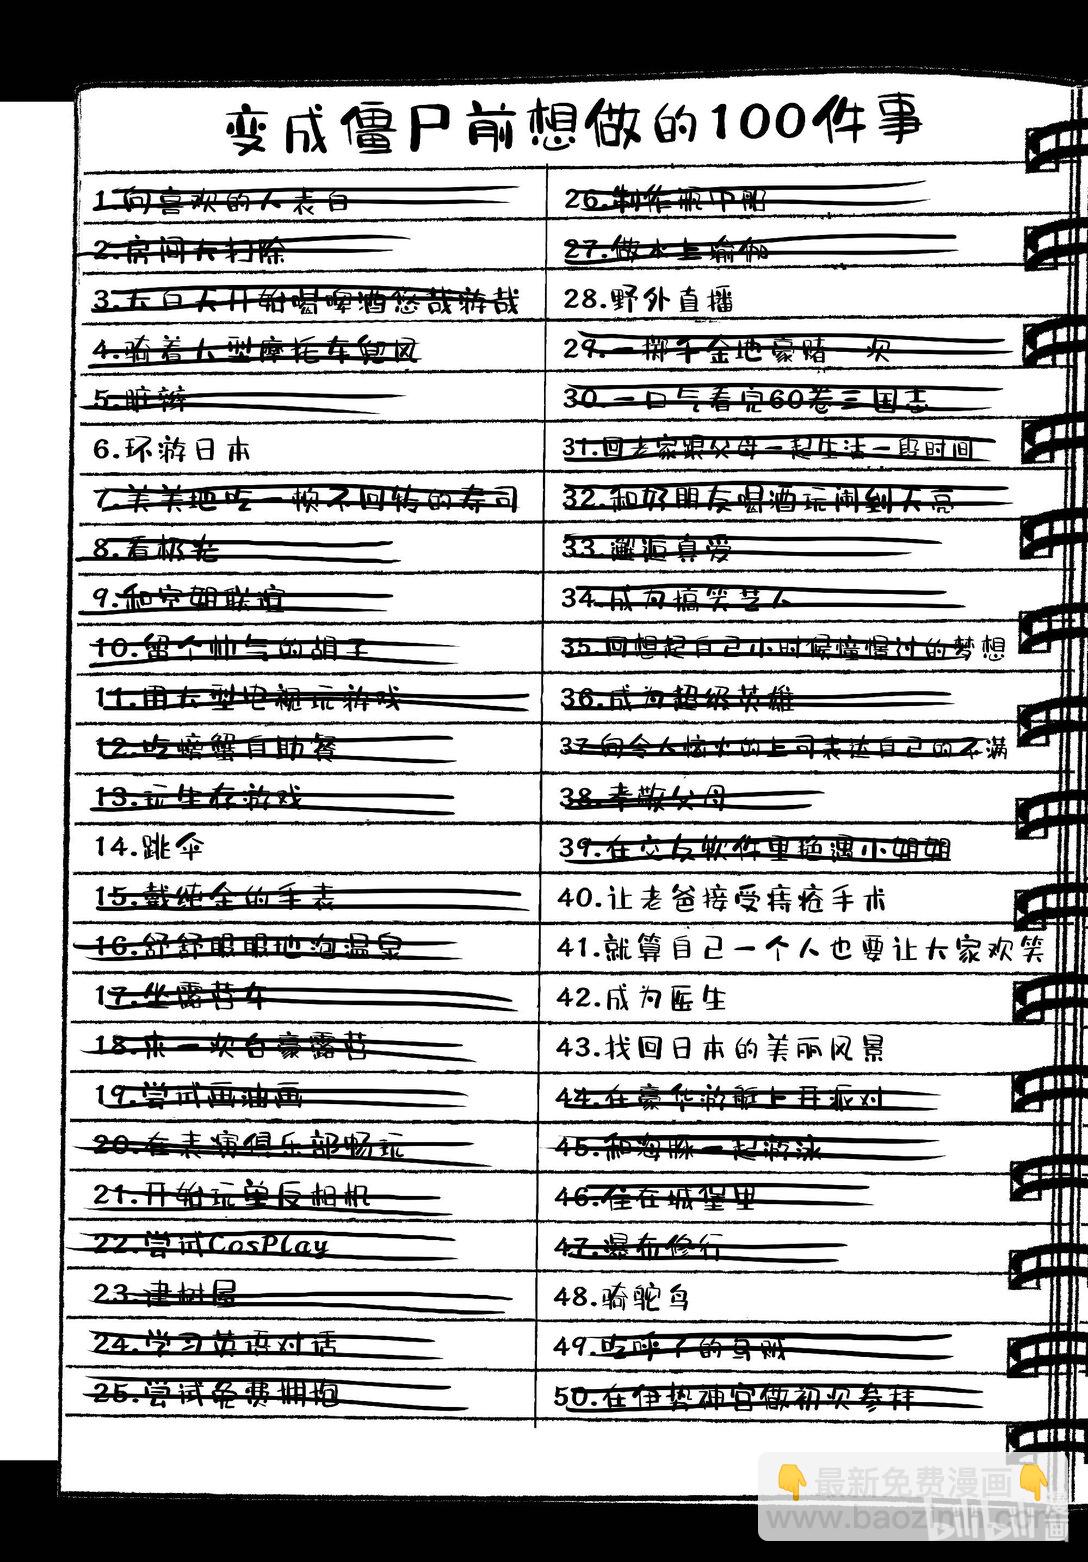 变成僵尸前想做的100件事
1.向喜欢的人表白
2.房间大扫除
3.大白天开始喝啤酒悠哉游哉
4.骑着大型摩托车兜风
5.脏辫
6.环游日本
7.美美地吃一顿不回转的寿司
8.看极光
9.和空姐联谊
10.留个帅气的胡子
11.用大型电视玩游戏
12.吃螃蟹自助餐
13.玩生存游戏
14.跳伞
15.戴纯金的手表
16.舒舒服服地泡温泉
17.坐露营车
18.来一次自豪露营
19.尝试画油画
20.在表演俱乐部畅玩
21.开始玩单反相机
22.尝试CosPlay
23.建树屋
24.学习英语对话
25.尝试免费拥抱
26.制作瓶中船
27.做水上瑜伽
28.野外直播
29.一掷千金地豪赌一次
30.一口气看完60卷三国志
31.回老家跟父母一起生活一段时间
32.和好朋友喝酒玩闹到天亮
33.邂逅真爱
34.成为搞笑艺人
35.回想起自己小时候憧憬过的梦想
36.成为超级英雄
37.向令人恼火的上司表达自己的不满
38.孝敬父母
39.在交友软件里艳遇小姐姐
40.让老爸接受痔疮手术
41.就算自己一个人也要让大家欢笑
42.成为医生
43.找回日本的美丽风景
44.在豪华游艇上开派对
45.和海豚一起游泳
46.住在城堡里
47.瀑布修行
48.骑鸵鸟
49.吃哼了的乌贼
50.在伊势神宫做初次参拜
👇最新免费漫画👇
www.baozimh.com
bilibili
漫画